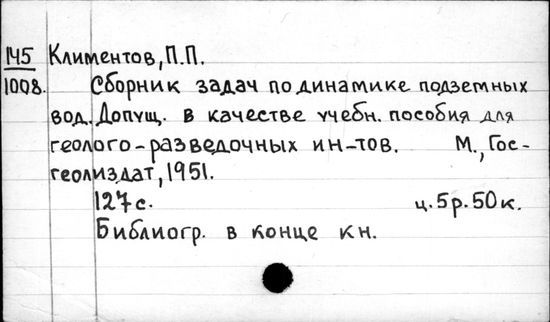 145 Климентов, П.П.
1008. Сборник задач по динамике подземных
вод. Допущ. в качестве учебн. пособия для
геолого-разведочных ин-тов. М., Гос-
геолиздат, 1951.
127 с. ц. 5 р. 50 к.
Библиогр. в конце кн.